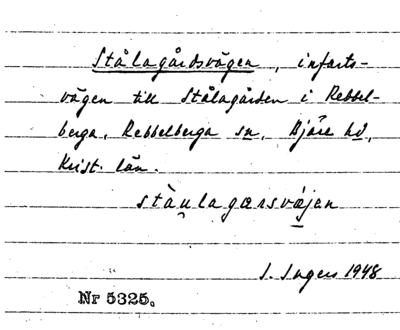 Stålagårdsvägen, infarts-
vägen till Stålagården i Rebbel-
berga, Rebbelberga sn, Bjäre hd,
Krist. län.
stàu̯lagarsvä́jen
I. Ingers 1948
Nr 5325.